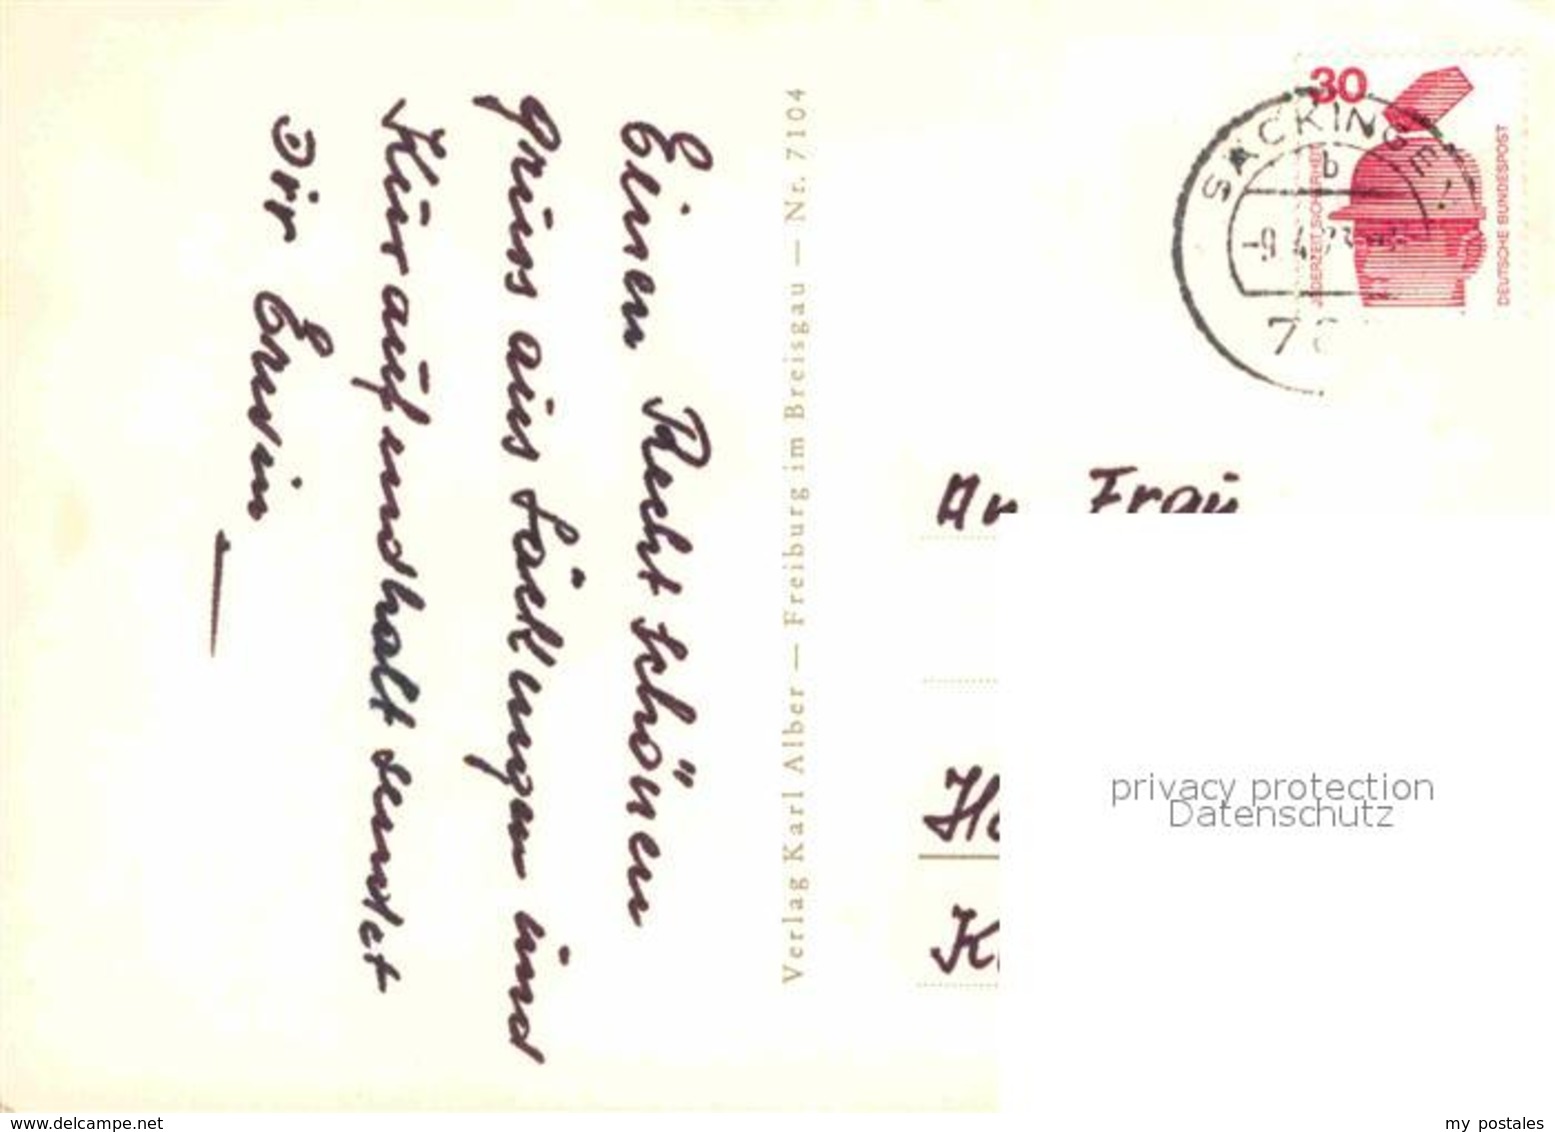 Einen Recht schönen
gruss aus Säckingen und
Kuraufundhalt sendet
Dir Erwin
Verlag Karl Alber — Freiburg im Breisgau — Nr. 7104
30
JEDERZEIT SICHERHEIT
DEUTSCHE BUNDESPOST
SÄCKINGEN
b
-9.4.73
78
An Frau
privacy protection
Datenschutz
www.delcampe.net
my postales